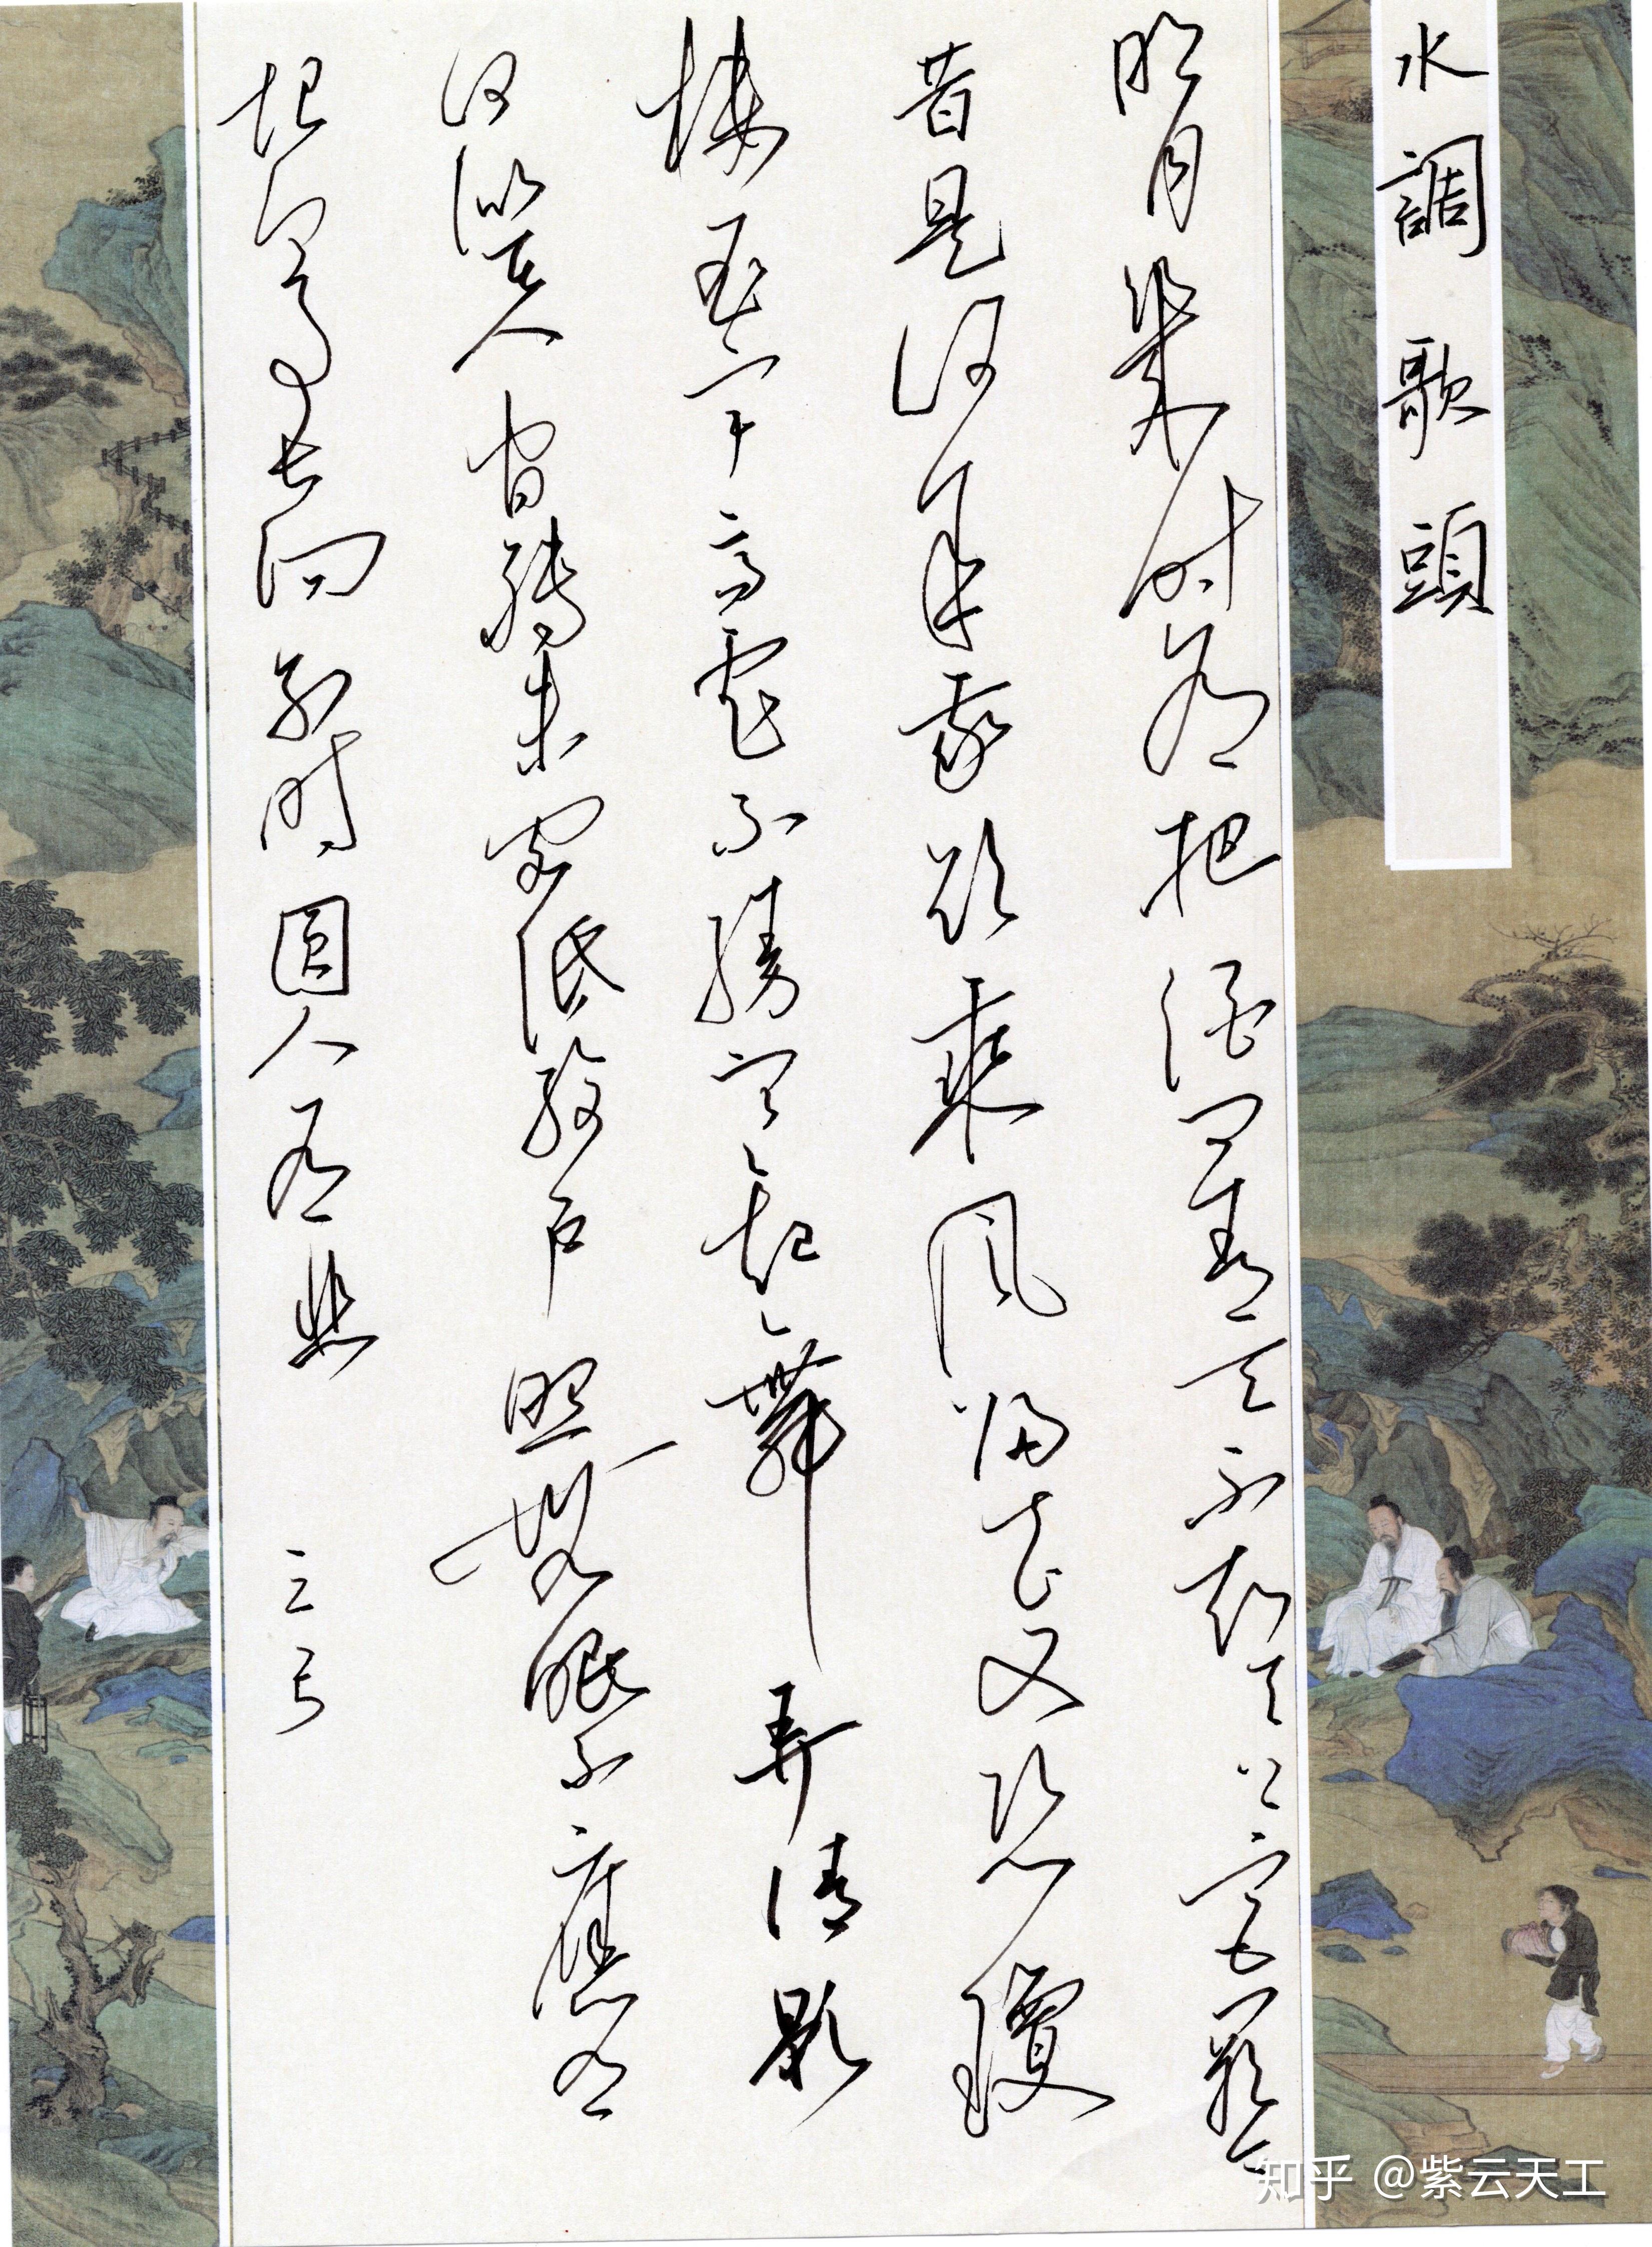 水調歌頭
明月幾时有把酒問青天不知天上宮闕
昔是何年我欲乘風歸去又恐瓊
樓玉宇高處不勝寒起舞弄清影
何似在人間轉朱閣低綺戶照無眠不應有
恨何事長向別时圓人有悲
知乎 @紫云天工